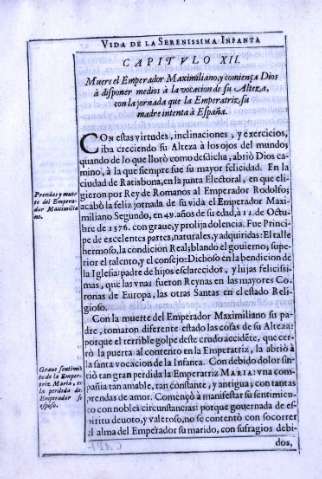 VIDA DE LA SERENISSIMA INFANTA
CAPITVLO XII.
Muere el Emperador Maximiliano, y comiença Dios
à disponer medios à la vocacion de su Alteza,
con la jornada que la Emperatriz, su
madre intenta à España.
CON estas virtudes, inclinaciones, y exercicios,
iba creciendo su Alteza à los ojos del mundo
quando de lo que llorò como desdicha, abriò Dios ca-
mino, à la que siempre fue su mayor felicidad. En la
ciudad de Ratisbona, en la junta Electoral, en que eli-
gieron por Rey de Romanos al Emperador Rodolfo;
acabò la feliz jornada de su vida el Emperador Maxi-
miliano Segundo, en 49. años de su edad, à 12. de Octu-
bre de 1576. con graue, y prolija dolencia. Fue Princi-
pe de excelentes partes, naturales, y adquiridas: El talle
hermoso, la condicion Real; blando el gouierno; supe-
rior el talento, y el consejo: Dichoso en la bendicion de
la Iglesia: padre de hijos esclarecidos, y hijas felicissi-
mas, que las vnas fueron Reynas en las mayores Co-
ronas de Europa, las otras Santas en el estado Reli-
gioso.
Prendas, y muer-
te del Empera-
dor Maximilia-
no.
Con la muerte del Emperador Maximiliano su pa-
dre, tomaron diferente estado las cosas de su Alteza:
porque el terrible golpe deste crudo accidẽte, que cer-
rò la puerta al contento en la Emperatriz, la abriò à
la santa vocacion de la Infanta. Con debido dolor sin-
tiò tan gran perdida la Emperatriz MARIA: vna com-
pañia tan amable, tan constante, y antigua; con tantas
prendas de amor. Començò à manifestar su sentimien-
to con nobles circunstancias: porque gouernada de es-
piritu deuoto, y valeroso, no se contentò con socorrer
al alma del Emperador su marido, con sufragios debi-
dos,
Graue sentimiẽ-
to de la Empera-
triz Maria, en
la perdida del
Emperador su
esposo.